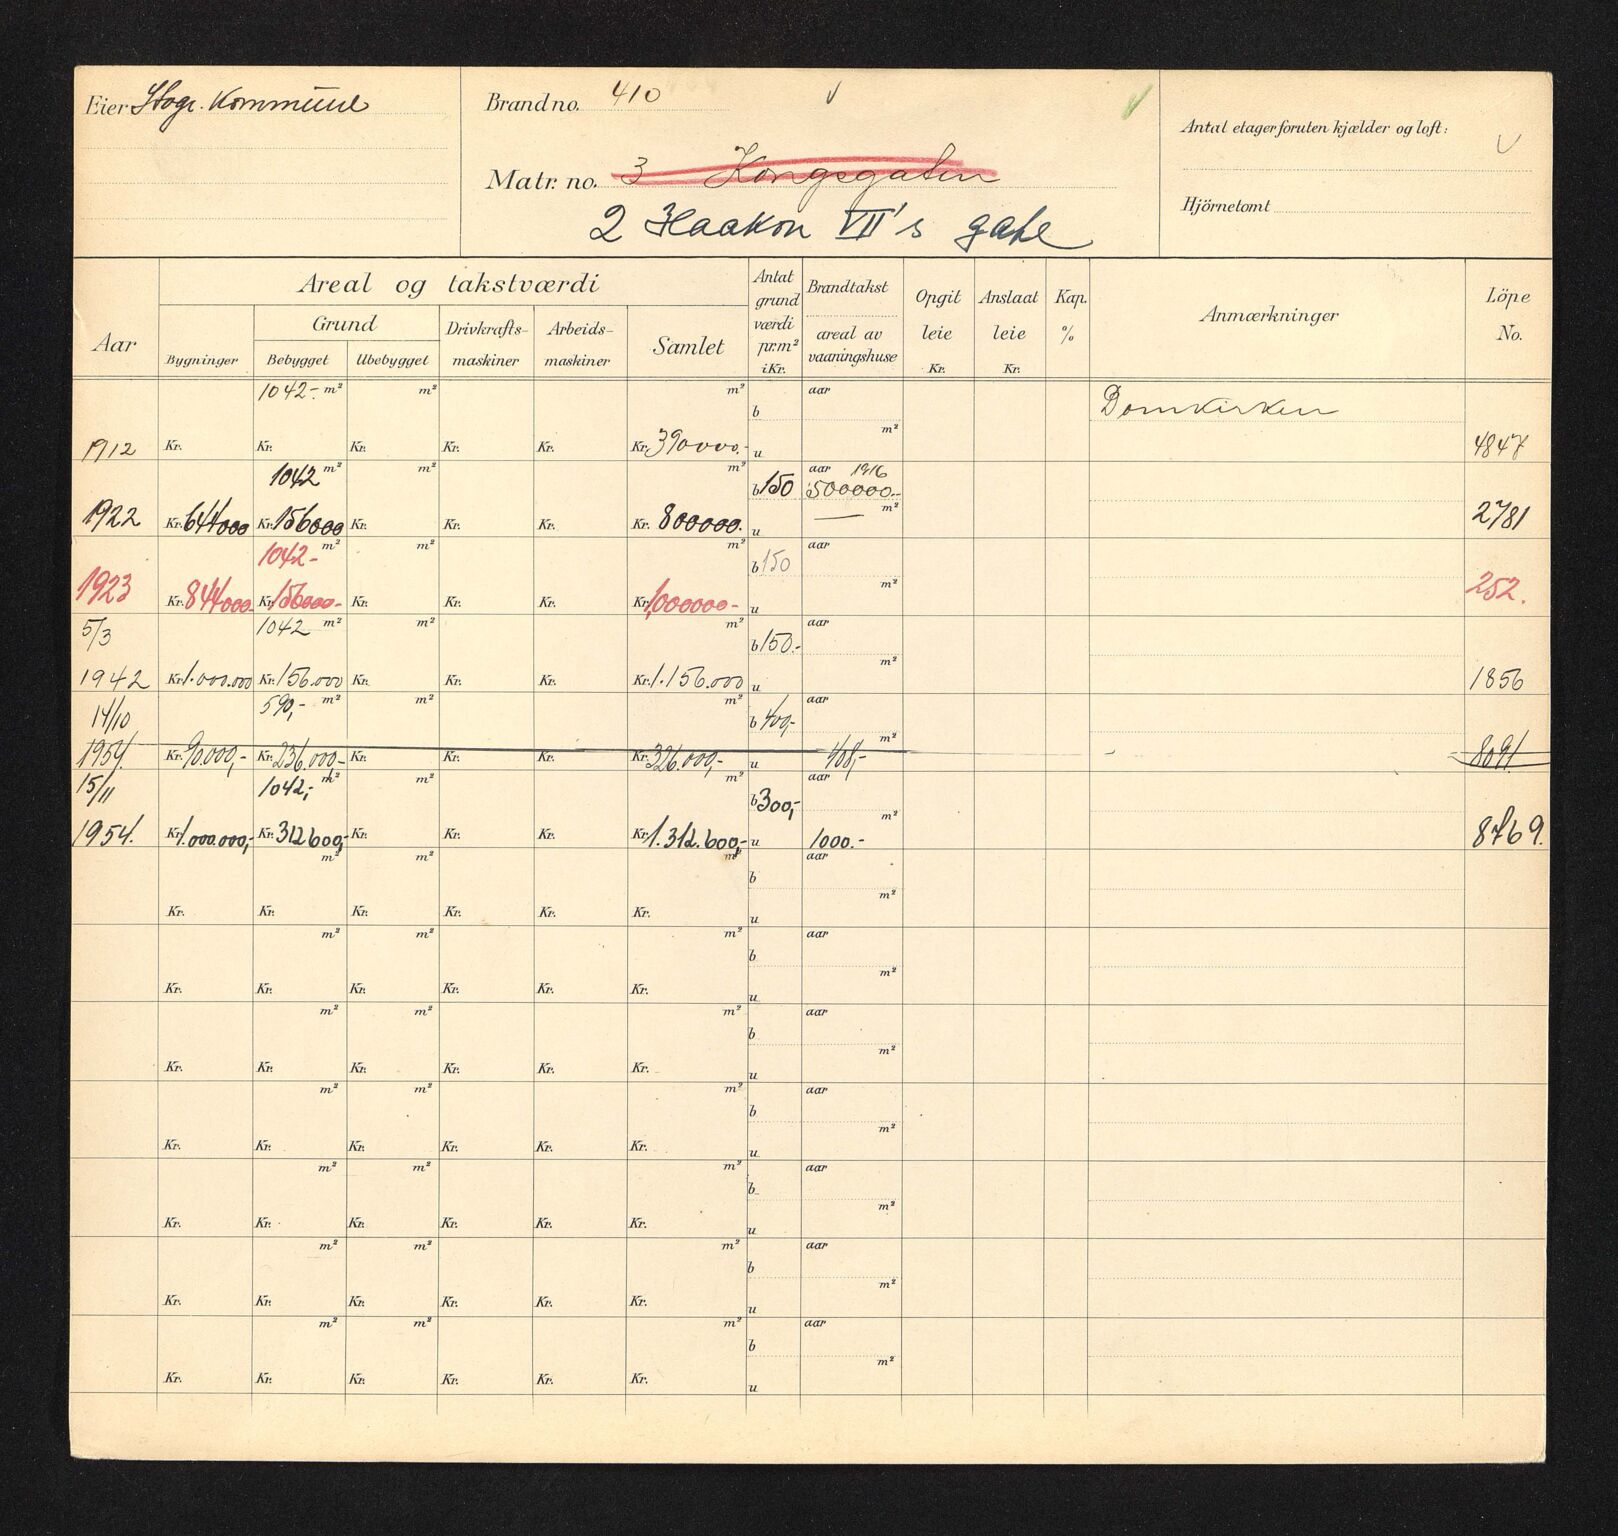 Eier Stvgr. Kommune
Brand no. 410 v
Antal etager foruten kjælder og loft: v
Matr. no. 3 Kongsgaten
2 Haakon VII's gate
Hjörnetomt
Aar
Areal og takstværdi
Bygninger
Grund
Bebygget
Ubebygget
Drivkrafts-
maskiner
Arbeids-
maskiner
Samlet
Antat
grund
værdi
pr.m²
i Kr.
Brandtakst
areal av
vaaningshuse
Opgit
leie
Kr.
Anslaat
leie
Kr.
Kap.
%
Anmærkninger
Löpe
No.
1042.- m² m² m² b aar m² Domkirken
1912 Kr. Kr. Kr. Kr. Kr. Kr. 390000.- u 4847
1042 m² m² m² b 150 aar 1916 500000.- m²
1922 Kr. 644000 Kr. 156000 Kr. Kr. Kr. Kr. 800000. u — 2781
1042- m² m² m² b 150 aar m²
1923 Kr. 844000.- Kr. 156000.- Kr. Kr. Kr. Kr. 1,000000- u 252.
5/3 1042 m² m² m² b 150.- aar m²
1942 Kr. 1.000.000 Kr. 156.000 Kr. Kr. Kr. Kr. 1.156.000 u 1856
14/10 590,- m² m² m² b 400,- aar m²
1954. Kr. 90.000,- Kr. 236.000,- Kr. Kr. Kr. Kr. 326.000,- u 408,- 8091.
15/11 1042,- m² m² m² b 300,- aar m²
1954. Kr. 1.000.000,- Kr. 312600,- Kr. Kr. Kr. Kr. 1.312.600,- u 1000.- 8769.
m² m² m² b aar m²
Kr. Kr. Kr. Kr. Kr. Kr. u
m² m² m² b aar m²
Kr. Kr. Kr. Kr. Kr. Kr. u
m² m² m² b aar m²
Kr. Kr. Kr. Kr. Kr. Kr. u
m² m² m² b aar m²
Kr. Kr. Kr. Kr. Kr. Kr. u
m² m² m² b aar m²
Kr. Kr. Kr. Kr. Kr. Kr. u
m² m² m² b aar m²
Kr. Kr. Kr. Kr. Kr. Kr. u
m² m² m² b aar m²
Kr. Kr. Kr. Kr. Kr. Kr. u